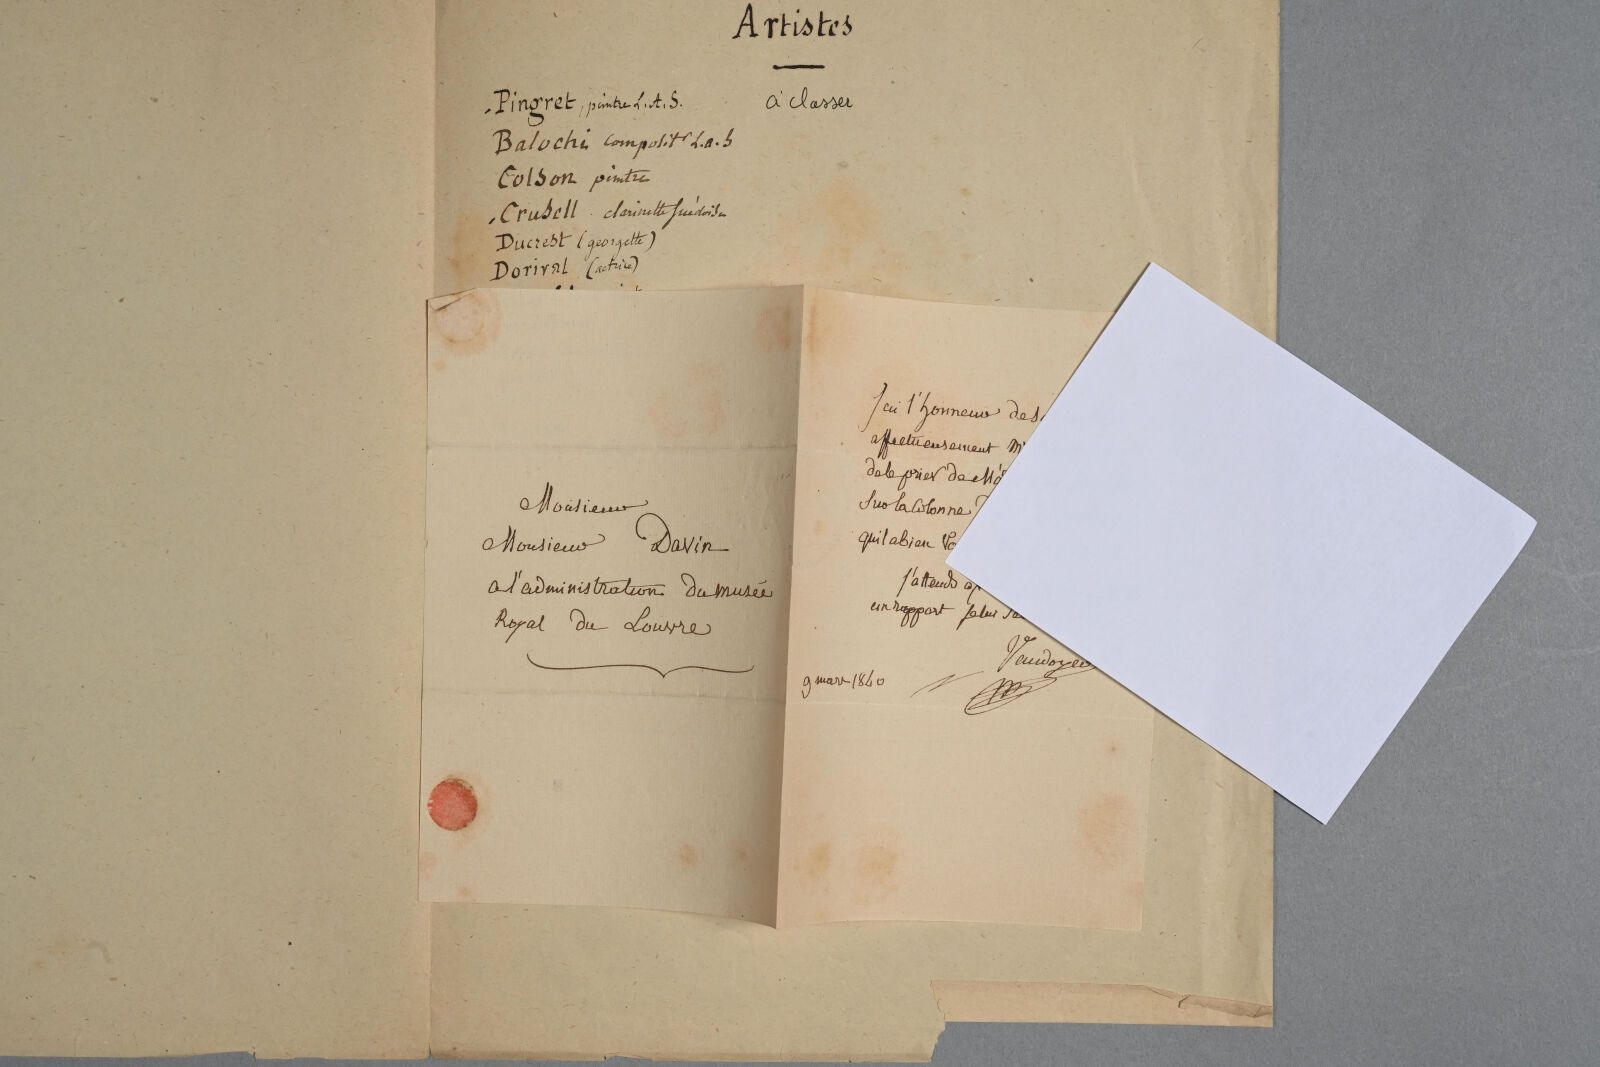 Artistes
Pingret, peintre L.A.S.
à classer
Balochi composit^r L.a.S
Colson peintre
Crusell clarinette suédoise
Ducrest (georgette)
Dorival (actrice)
Monsieur
Monsieur Davin
a l'administration du musée
Royal du Louvre
J'ai l'honneur de
affectueusement
de le prier de
Sur la Colonne
qu'il a bien
j'attends
un rapport
Vaudoyer
9 mars 1840